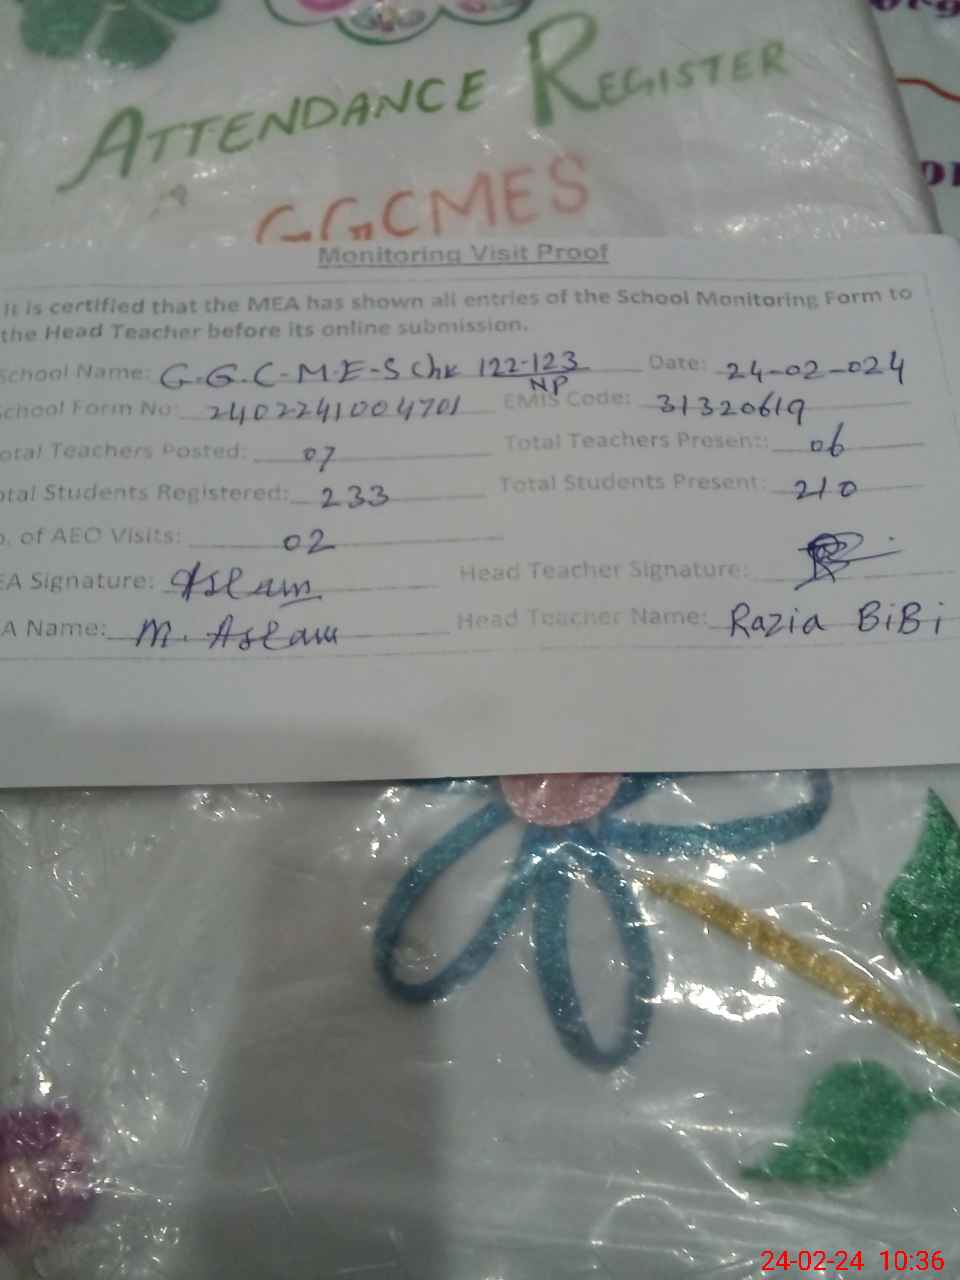 ATTENDANCE REGISTER
GGCMES
Monitoring Visit Proof
It is certified that the MEA has shown all entries of the School Monitoring Form to
the Head Teacher before its online submission.
School Name: G.G.C-M.E-S Chk 122-123 NP Date: 24-02-024
School Form No: 2402241004701 EMIS Code: 31320619
otal Teachers Posted: 07 Total Teachers Present: 06
otal Students Registered: 233 Total Students Present: 210
o. of AEO Visits: 02
EA Signature: Aslam Head Teacher Signature:
A Name: M. Aslam Head Teacher Name: Razia BiBi
24-02-24 10:36